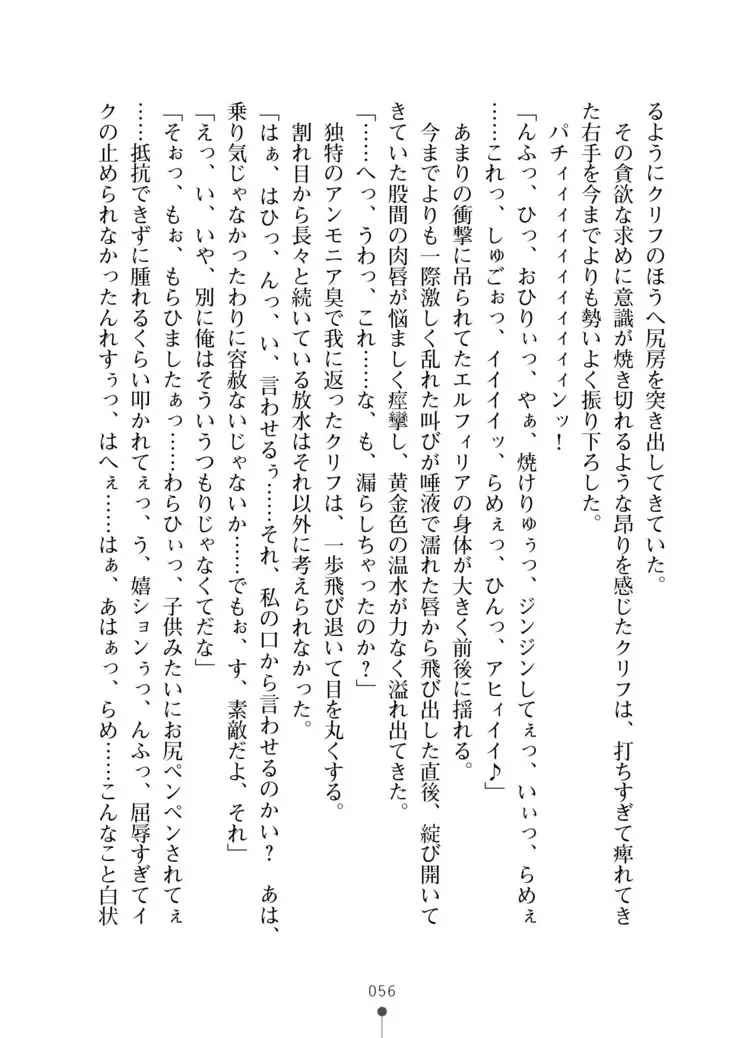 るようにクリフのほうへ尻房を突き出してきていた。
　その貪欲な求めに意識が焼き切れるような昂りを感じたクリフは、打ちすぎて痺れてき
た右手を今までよりも勢いよく振り下ろした。
　パチィィィィィィィィィンッ！
「んふっ、ひっ、おひりぃっ、やぁ、焼けりゅぅっ、ジンジンしてぇっ、いぃっ、らめぇ
……これっ、しゅごぉっ、イイイイッ、らめぇっ、ひんっ、アヒィイイ♪」
　あまりの衝撃に吊られてたエルフィリアの身体が大きく前後に揺れる。
　今までよりも一際激しく乱れた叫びが唾液で濡れた唇から飛び出した直後、綻び開いて
きていた股間の肉唇が悩ましく痙攣し、黄金色の温水が力なく溢れ出てきた。
「……へっ、うわっ、これ……な、も、漏らしちゃったのか？」
　独特のアンモニア臭で我に返ったクリフは、一歩飛び退いて目を丸くする。
　割れ目から長々と続いている放水はそれ以外に考えられなかった。
「はぁ、はひっ、んっ、い、言わせるぅ……それ、私の口から言わせるのかい？　あは、
乗り気じゃなかったわりに容赦ないじゃないか……でもぉ、す、素敵だよ、それ」
「えっ、い、いや、別に俺はそういうつもりじゃなくてだな」
「そぉっ、もぉ、もらひましたぁっ……わらひぃっ、子供みたいにお尻ペンペンされてぇ
……抵抗できずに腫れるくらい叩かれてぇっ、う、嬉ションぅっ、んふっ、屈辱すぎてイ
クの止められなかったんれすぅっ、はへぇ……はぁ、あはぁっ、らめ……こんなこと白状
056